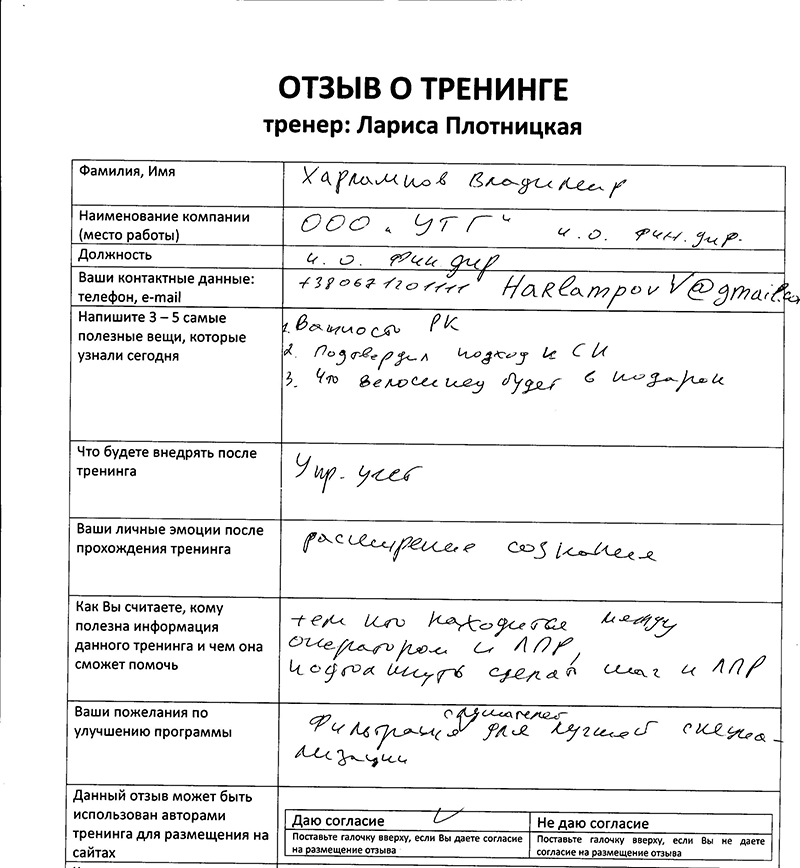 ОТЗЫВ О ТРЕНИНГЕ
тренер: Лариса Плотницкая
Фамилия, Имя
Харлампов Владимир
Наименование компании
(место работы)
ООО „УТГ“ и.о. фин. дир.
Должность
и.о. фин дир
Ваши контактные данные:
телефон, e-mail
+380671201111 HarlampovV@gmail.co
Напишите 3 – 5 самые
полезные вещи, которые
узнали сегодня
1. Важность РК
2. Подтвердил подход к СИ
3. Что велосипед будет в подарок
Что будете внедрять после
тренинга
Упр. учет
Ваши личные эмоции после
прохождения тренинга
расширение сознания
Как Вы считаете, кому
полезна информация
данного тренинга и чем она
сможет помочь
тем кто находится между
оператором и ЛПР,
подтолкнуть сделать шаг к ЛПР
Ваши пожелания по
улучшению программы
слушателей
Фильтрация для лучшей специа-
лизации
Данный отзыв может быть
использован авторами
тренинга для размещения на
сайтах
Даю согласие
Не даю согласие
Поставьте галочку вверху, если Вы даете согласие
на размещение отзыва
Поставьте галочку вверху, если Вы не даете
согласие на размещение отзыва